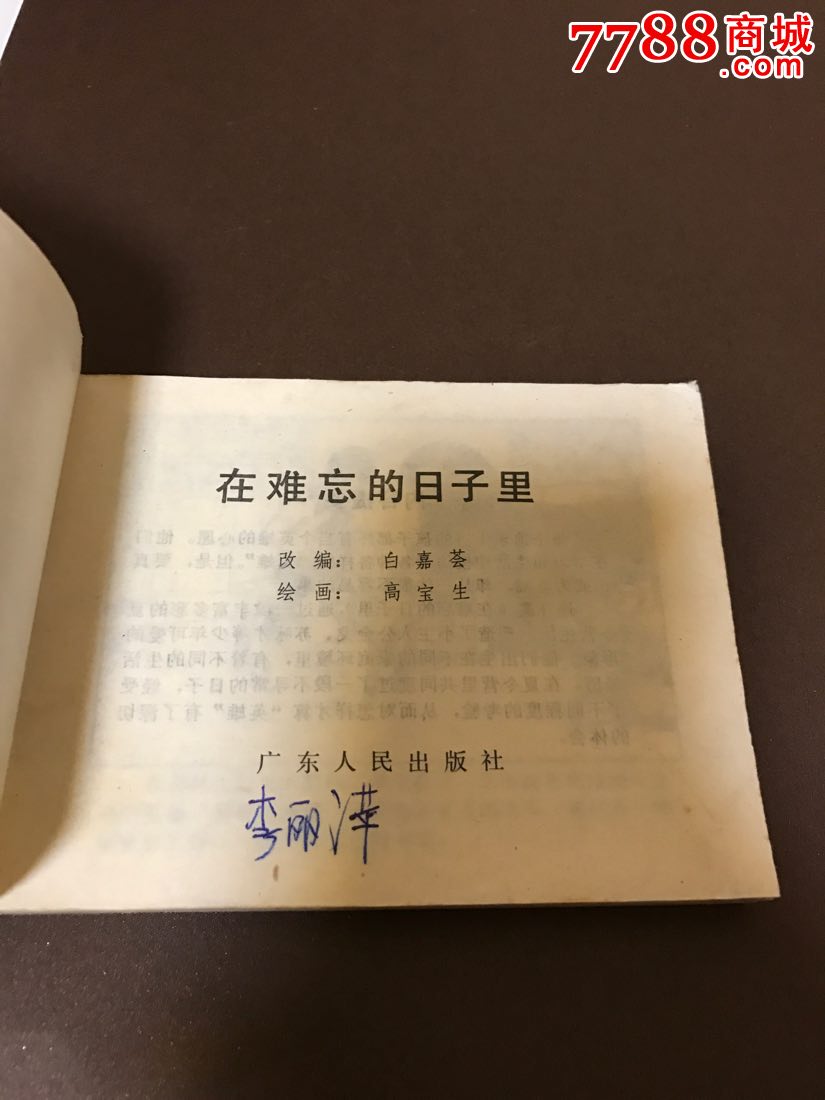 7788商城
.com
在难忘的日子里
改编： 白嘉荟
绘画： 高宝生
广东人民出版社
李丽